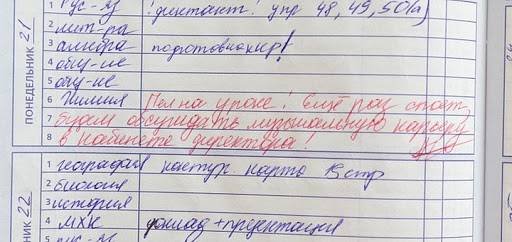 ПОНЕДЕЛЬНИК 21
1 Рус-яз !диктант! упр 48, 49, 50(а)
2 лит-ра
3 алгебра подготовка к кр!
4 общ-ие
5 общ-ие
6 Химия Пел на уроке! Ещё раз споет,
7 будем обсуждать музыкальную карьеру
8 в кабинете директора!
НИК 22
1 география контур карта стр
2 биология
3 история
4 МХК доклад + презентация
5 рус-яз